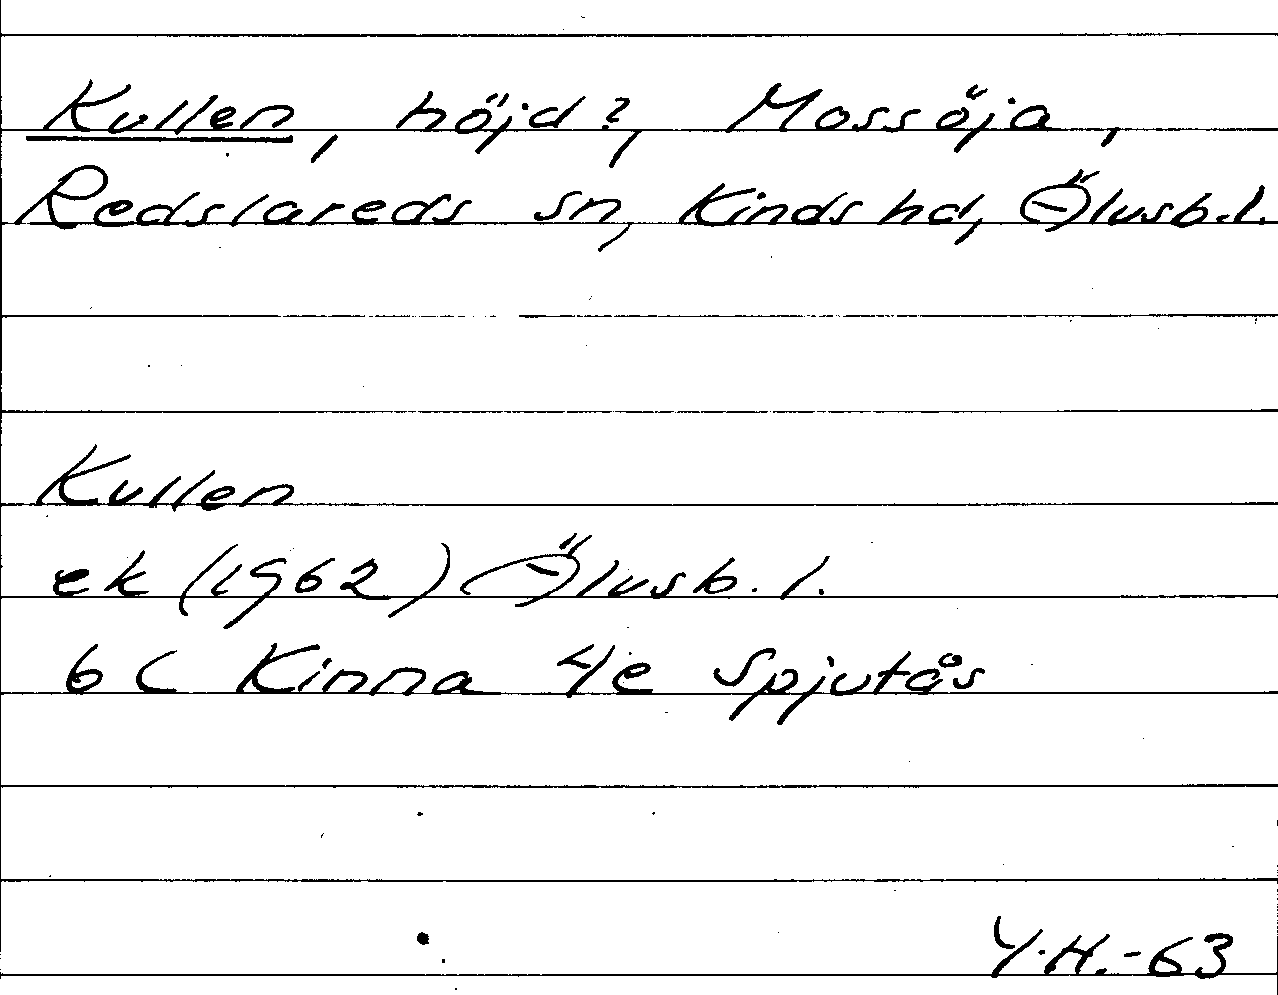 Kullen, höjd?, Mossöja,
Redslareds sn, Kinds hd, Älvsb. l.
Kullen
ek (1962) Älvsb. l.
6 C Kinna 4e Spjutås
Y.H.-63